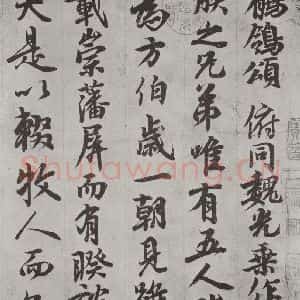 鶺鴒頌 俯同魏光乘作
朕之兄弟唯有五人
為方伯歲一朝見雖
載崇藩屏而有睽
是以輟牧人而
Shufawang.Cn